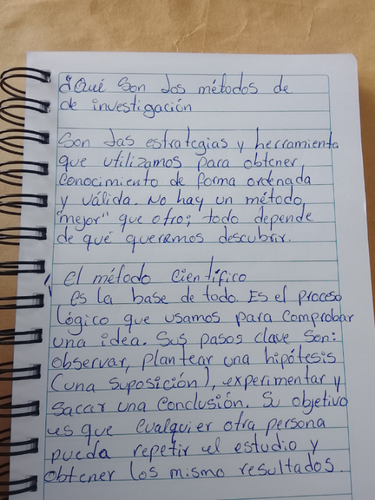 ¿Qué son los métodos de
de investigación
Son las estrategias y herramienta
que utilizamos para obtener
conocimiento de forma ordenada
y válida. No hay un método
"mejor" que otro; todo depende
de qué queremos descubrir.
El método científico
es la base de todo. Es el proceso
lógico que usamos para comprobar
una idea. Sus pasos clave son:
observar, plantear una hipótesis
(una suposición), experimentar y
sacar una conclusión. Su objetivo
es que cualquier otra persona
pueda repetir el estudio y
obtener los mismo resultados.